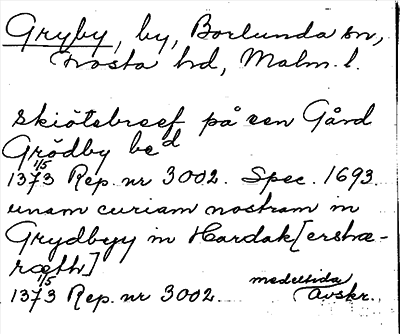 Gryby, by, Borlunda sn,
Frosta hd, Malm. l.
Skiötebreef på een Gård
Grödby be^d
1/5
1373 Rep. nr 3002. Spec. 1693.
unam curiam nostram in
Grydbyy in Hardak[ershæ-
ræth]
1/5 medeltida
1373 Rep. nr 3002. Avskr.